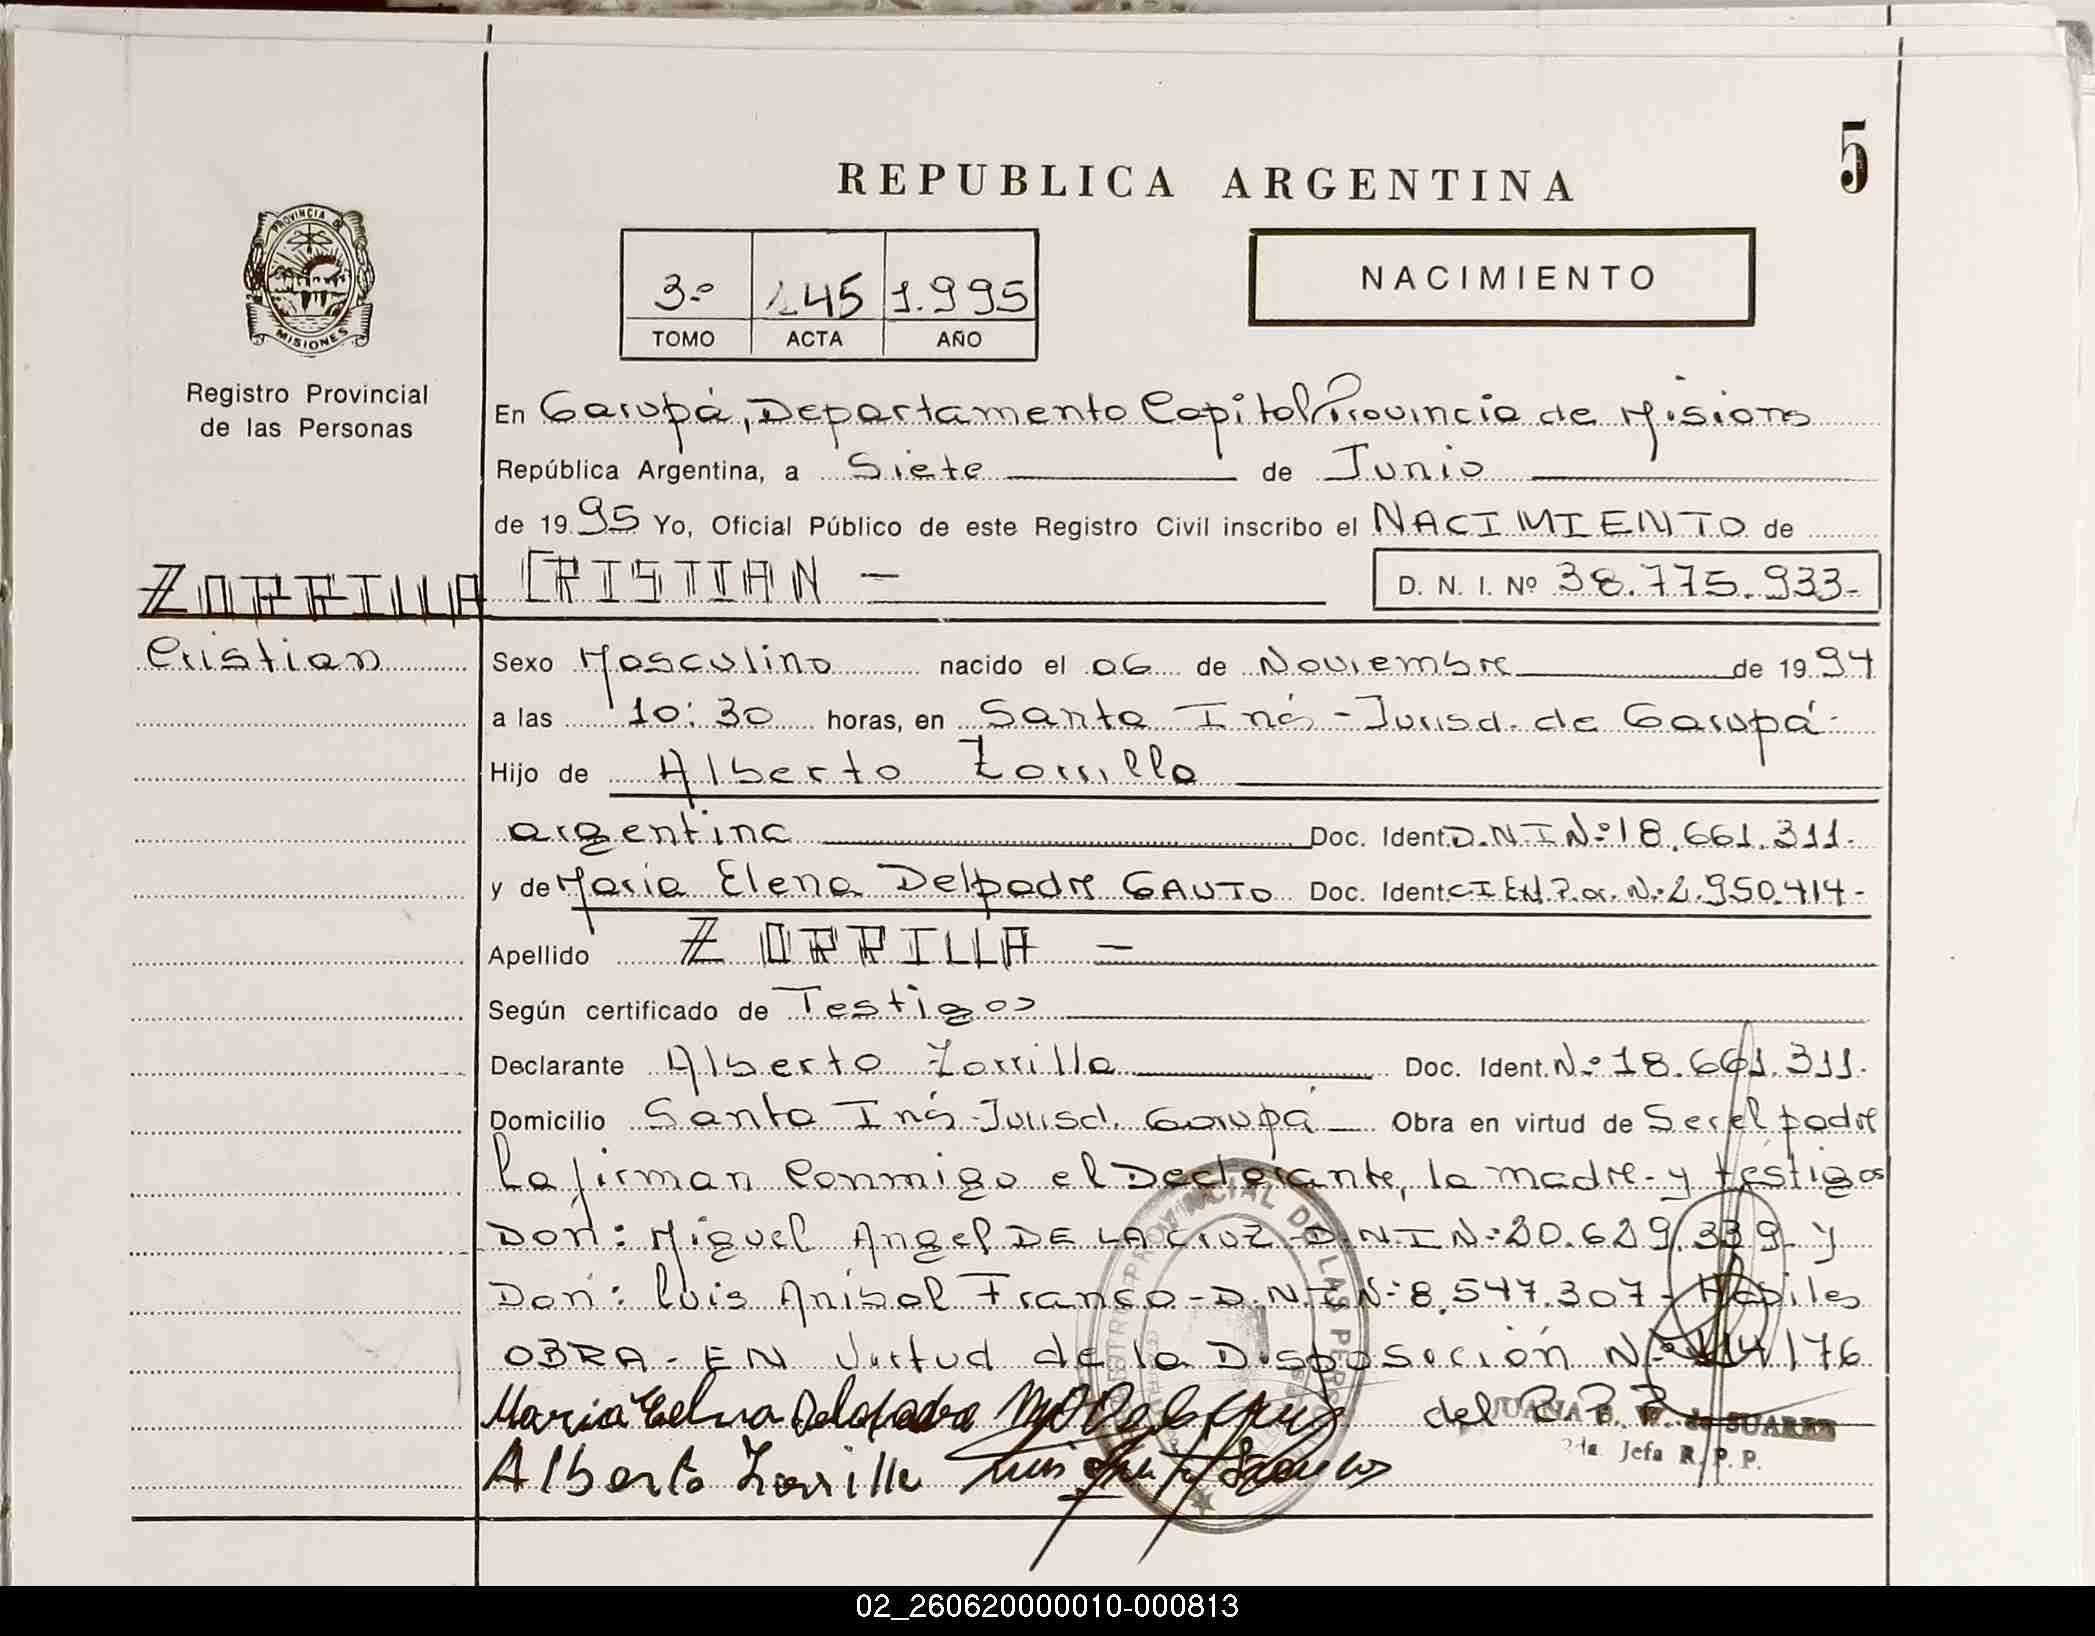 5
REPUBLICA ARGENTINA
PROVINCIA DE
MISIONES
Registro Provincial
de las Personas
3.º 145 1.995
TOMO ACTA AÑO
NACIMIENTO
En Garupá, Departamento Capital Provincia de Misiones
República Argentina, a Siete de Junio
de 1995 Yo, Oficial Público de este Registro Civil inscribo el NACIMIENTO de
ZORRILLA CRISTIAN - D. N. I. Nº 38.775.933-
Cristian
Sexo Masculino nacido el 06 de Noviembre de 1994
a las 10:30 horas, en Santa Inés - Jurisd. de Garupá-
Hijo de Alberto Zorrilla
argentina Doc. Ident. D.N.I Nº 18.661.311-
y de Maria Elena Delpadre GAUTO Doc. Ident. C I Nº 2.950.414-
Apellido ZORRILLA -
Según certificado de Testigos
Declarante Alberto Zorrilla Doc. Ident. Nº 18.661.311-
Domicilio Santa Inés - Jurisd. Garupá Obra en virtud de Ser el padre
La firman Conmigo el Declarante, la madre - y testigos
Don: Miguel Angel DE LA CRUZ - D.N.I N: 20.629.339 y
Don: Luis Anibal Franco - D.N.I N: 8.547.307 - Hábiles
OBRA - EN Virtud de la Disposición Nº 114/76
del R.P.P
Maria Elena Delpadre
Alberto Zorrilla
REGISTRO PROVINCIAL DE LAS PERSONAS
JUANA de SUAREZ
2da. Jefa R. P. P.
02_260620000010-000813